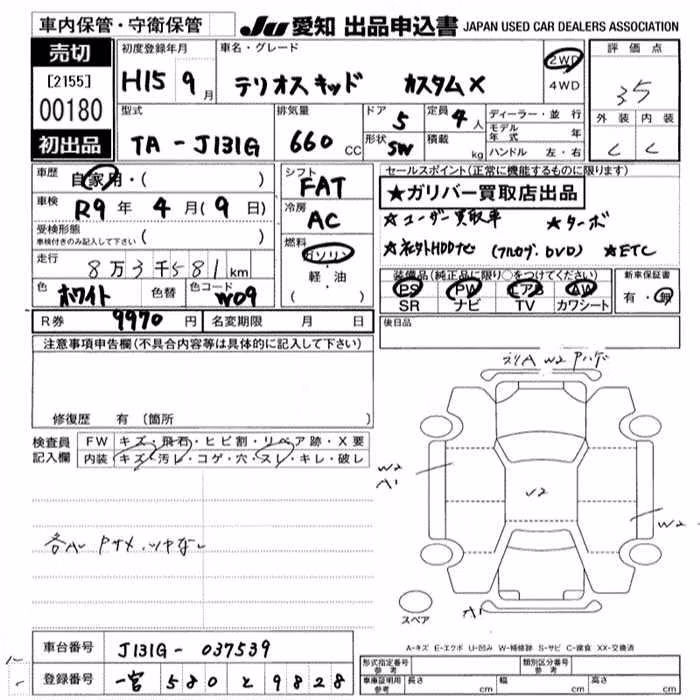 車内保管・守衛保管
JU 愛知 出品申込書 JAPAN USED CAR DEALERS ASSOCIATION
売切
[2155]
00180
初出品
初度登録年月
H15 9月
車名・グレード
テリオスキッド カスタムX
2WD
4WD
評価点
3.5
外装 内装
C C
型式
TA-J131G
排気量
660 CC
ドア
5
定員
4人
形状
SW
積載
kg
ディーラー・並行
モデル年式 年
ハンドル 左・右
車歴 自家用・( )
車検 R9年 4月(9日)
受検形態
車検付きのみ記入して下さい ( )
走行 8万3千581km
色 ホワイト 色替 色コード W09
シフト
FAT
冷房
AC
燃料
ガソリン
軽・油
( )
セールスポイント(正常に機能するものに限ります)
★ガリバー買取店出品
★ユーザー買取車 ★ターボ
★社外HDDナビ (フルセグ.DVD) ★ETC
装備品(純正品に限り○をつけてください)
PS PW エアB AW
SR ナビ TV カワシート
新車保証書
有・無
R券 9970円 名変期限 月 日
後日品
注意事項申告欄(不具合内容等は具体的に記入して下さい)
修復歴 有 (箇所 )
検査員記入欄
FW キズ・飛石・ヒビ割・リペア跡・X要
内装 キズ・汚レ・コゲ・穴・スレ・キレ・破レ
W2
A1
W2
A1
スペア
A-キズ E-エクボ U-凹み W-補修跡 S-サビ C-腐食 XX-交換済
車台番号 J131G-037539
登録番号 一宮 580 と 9828
形式指定番号 参考
類別区分番号 参考
車庫証明用 参考 長さ cm 幅 cm 高さ cm